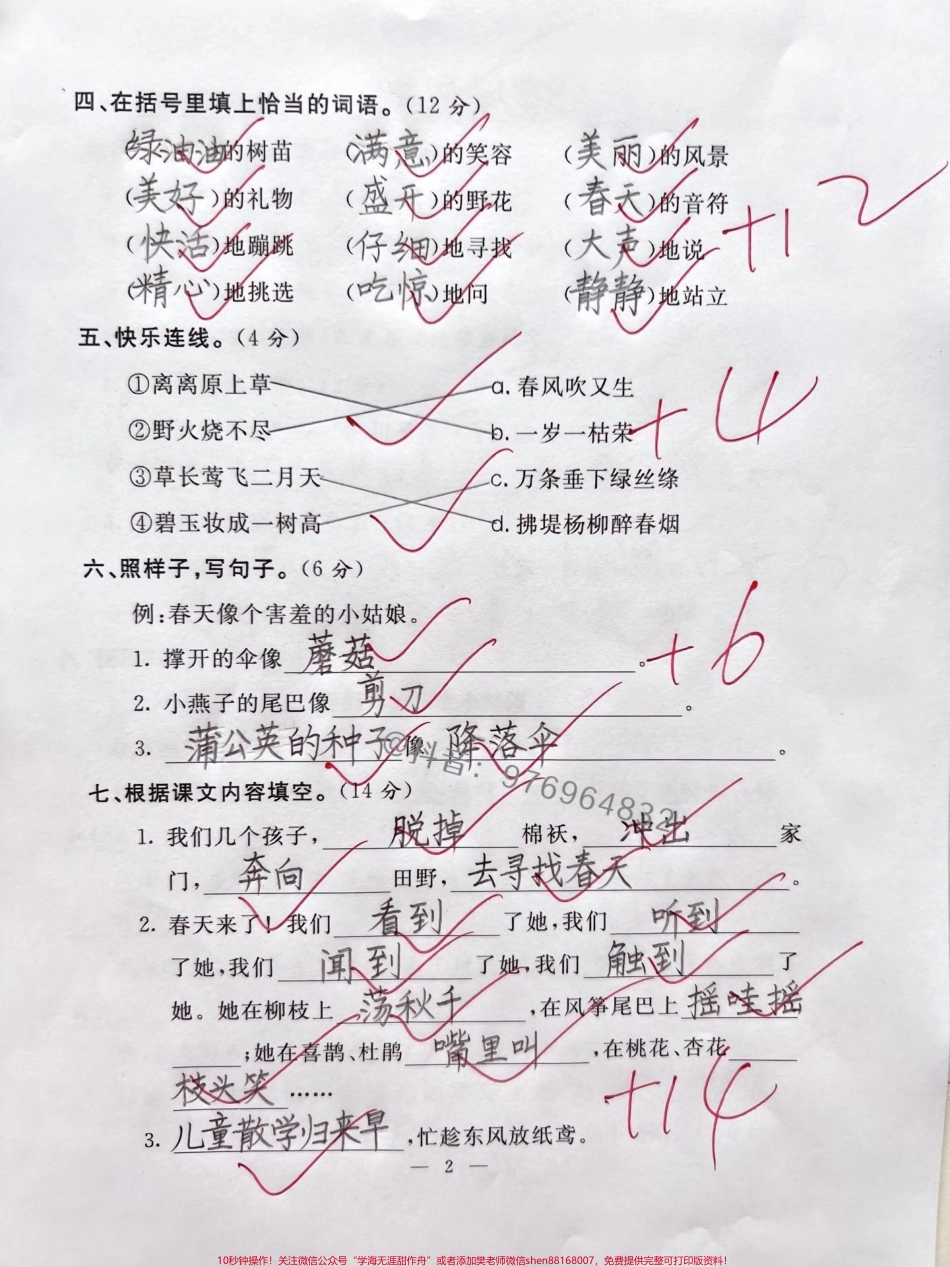 四、在括号里填上恰当的词语。(12分)
(绿油油)的树苗 (满意)的笑容 (美丽)的风景
(美好)的礼物 (盛开)的野花 (春天)的音符
(快活)地蹦跳 (仔细)地寻找 (大声)地说 +12
(精心)地挑选 (吃惊)地问 (静静)地站立
五、快乐连线。(4分)
①离离原上草 a.春风吹又生
②野火烧不尽 b.一岁一枯荣 +4
③草长莺飞二月天 c.万条垂下绿丝绦
④碧玉妆成一树高 d.拂堤杨柳醉春烟
六、照样子,写句子。(6分)
例:春天像个害羞的小姑娘。
1. 撑开的伞像 蘑菇 。 +6
2. 小燕子的尾巴像 剪刀 。
3. 蒲公英的种子 像 降落伞 。
@抖音: 976964832
七、根据课文内容填空。(14分)
1. 我们几个孩子, 脱掉 棉袄, 冲出 家
门, 奔向 田野, 去寻找春天 。
2. 春天来了!我们 看到 了她,我们 听到
了她,我们 闻到 了她,我们 触到 了
她。她在柳枝上 荡秋千 ,在风筝尾巴上 摇哇摇
;她在喜鹊、杜鹃 嘴里叫 ,在桃花、杏花
枝头笑 …… +14
3. 儿童散学归来早 ,忙趁东风放纸鸢。
— 2 —
10秒钟操作!关注微信公众号“学海无涯甜作舟”或者添加樊老师微信shen88168007,免费提供完整可打印版资料!